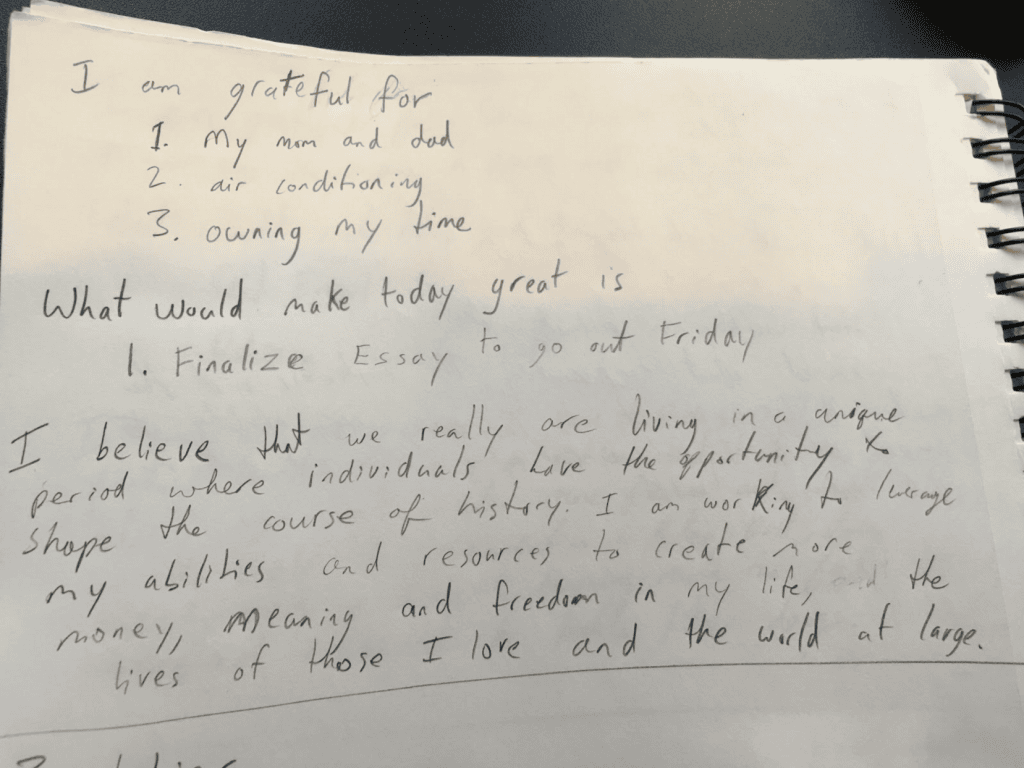 I am grateful for
1. My mom and dad
2. air conditioning
3. owning my time
What would make today great is
1. Finalize Essay to go out Friday
I believe that we really are living in a unique
period where individuals have the opportunity to
shape the course of history. I am working to leverage
my abilities and resources to create more
money, meaning and freedom in my life, and the
lives of those I love and the world at large.